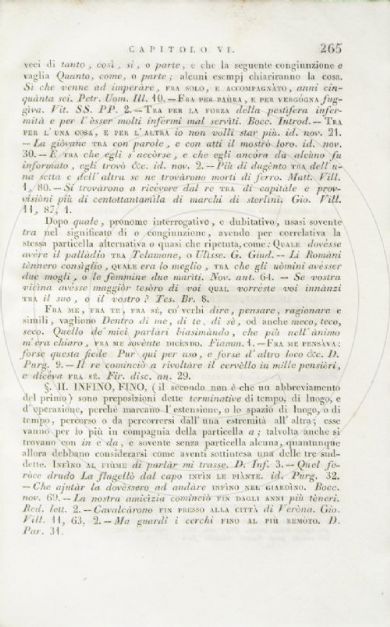 CAPITOLO VI. 265
veci di tanto, così, sì, o parte, e che la seguente congiunzione e
vaglia Quanto, come, o parte; alcuni esempj chiariranno la cosa.
Sì che venne ad imperàre, FRA SOLO, E ACCOMPAGNÀTO, anni cin-
quànta sei. Petr. Uom. Ill. 10. — FRA PER PAÙRA, E PER VERGÓGNA fug-
giva. Vit. SS. PP. 2. — TRA PER LA FORZA della pestìfera infer-
mità e per l'èsser molti infermi mal servìti. Bocc. Introd. — TRA
PER L'UNA COSA, E PER L'ALTRA io non volli star più. id. nov. 21.
— La gióvane TRA con parole, e con atti il mostrò loro. id. nov.
30. — E FRA che egli s'accòrse, e che egli ancóra da alcùno fu
informato, egli trovò ec. id. nov. 2. — Più di dugènto TRA dell'u-
na setta e dell'altra se ne trovárono morti di ferro. Matt. Vill.
1, 80. — Si trovárono a ricévere dal re TRA di capitále e prov-
visióni più di centottantamìla di marchi di sterlìni. Gio. Vill.
11, 87, 1.
Dopo quale, pronome interrogativo, e dubitativo, usasi sovente
tra nel significato di o congiunzione, avendo per correlativa la
stessa particella alternativa o quasi che ripetuta, come: QUALE dovèsse
avére il pallàdio TRA Telamone, o Ulisse. G. Giud. — Li Románi
ténnero consìglio, QUALE era lo meglio, TRA che gli uòmini avèsser
due mogli, o le fémmine due mariti. Nov. ant. 61. — Se vostra
vicìna avésse maggiór tesòro di voi qual vorréste voi innànzi
TRA il suo, o il vostro? Tes. Br. 8.
FRA ME, FRA TE, FRA SÉ, co' verbi dire, pensare, ragionare e
simili, vagliono Dentro di me, di te, di sè, od anche meco, teco,
seco. Quello de' miei parlári biasimando, che più nell'ánimo
m'era chiaro, FRA ME SOVÈNTE DICENDO. Fiamm. 4. — FRA ME PENSÁVA:
forse questa fiede Pur qui per uso, e forse d'altro loco &c. D.
Purg. 9. — Il re cominciò a rivoltare il cervèllo in mille pensièri,
e dicéva FRA SÉ. Fir. disc. an. 29.
§. II. INFINO, FINO, (il secondo non è che un abbreviamento
del primo) sono preposizioni dette terminative di tempo, di luogo, e
d'operazione, perchè marcano l'estensione, o lo spazio di luogo, o di
tempo, percorso o da percorrersi dall'una estremità all'altra; esse
vanno per lo più in compagnia della particella a; talvolta anche si
trovano con in e da, e sovente senza particella alcuna, quantunque
allora debbano considerarsi come aventi sottintesa una delle tre sud-
dette. INFÌNO AL FIÙME di parlár mi trasse. D. Inf. 3. — Quel fe-
róce drudo La flagellò dal capo INFIN LE PIÀNTE. id. Purg. 32.
— Che ajutár la dovéssero ad andare INFÌNO NEL GIARDÌNO. Bocc.
nov. 69. — La nostra amicìzia cominciò FIN DAGLI ANNI più tèneri.
Red. lett. 2. — Cavalcárono FIN PRESSO ALLA CITTÀ di Veróna. Gio.
Vill. 11, 63, 2. — Ma guardi i cerchi FINO AL PIÙ REMÒTO. D.
Par. 31.